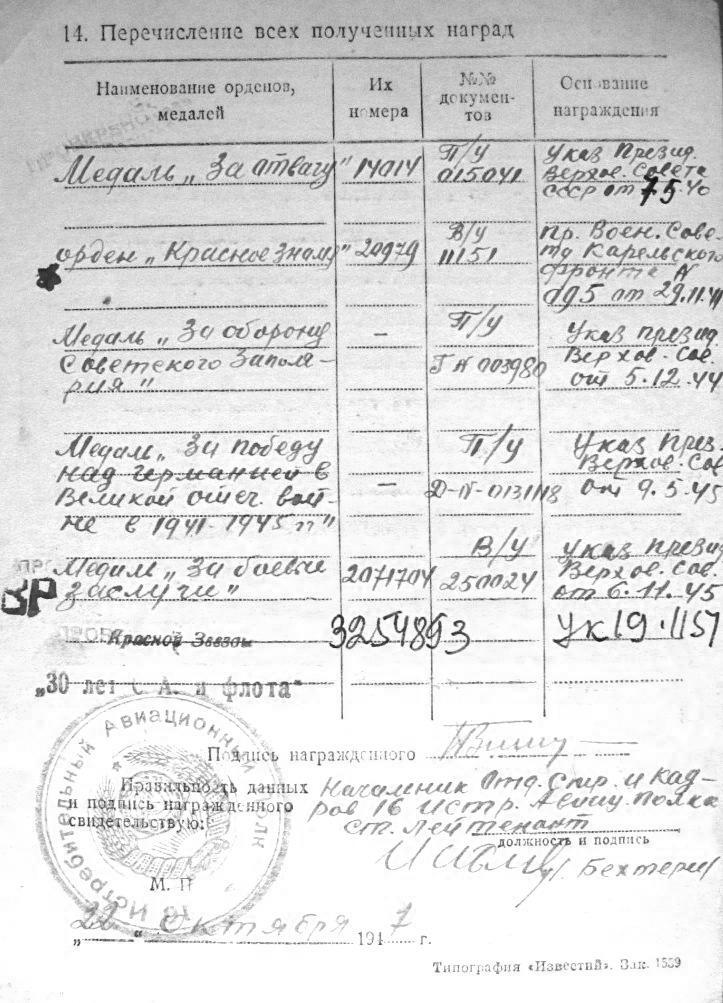 14. Перечисление всех полученных наград
Наименование орденов,
медалей
Их
номера
№№
докумен-
тов
Основание
награждения
Медаль „За отвагу"
14014
П/У
015041
Указ Презид.
Верхов. Совета
СССР от 7 5 40
орден „Красное Знамя"
20979
В/У
11151
Пр. Воен. Сове-
та Карельского
фронта N
от 29.11.41
Медаль „За оборону
Советского Заполя-
рия"
—
П/У
003980
Указ презид.
Верхов. Сов.
от 5.12.44
Медаль „За победу
над германией в
Великой отеч. вой-
не в 1941-1945 гг"
—
П/У
Д-N-0131118
Указ През.
Верхов. Сов
от 9.5.45
Медаль „За боевые
заслуги"
2071704
В/У
250024
Указ презид
Верхов. Сов.
от 6.11.45
ВР
Красной Звезды
3254893
УК 19.1151
„30 лет С. А. и флота"
Подпись награжденного
Правильность данных
и подпись награжденного
свидетельствую:
Начальник Отд. Стр. и кад-
ров 16 Истр. Авиац. Полка
ст. лейтенант
должность и подпись
Истребительный Авиационный Полк
М. П
„22" Октября 1947 г.
Типография «Известий». Зак. 1539